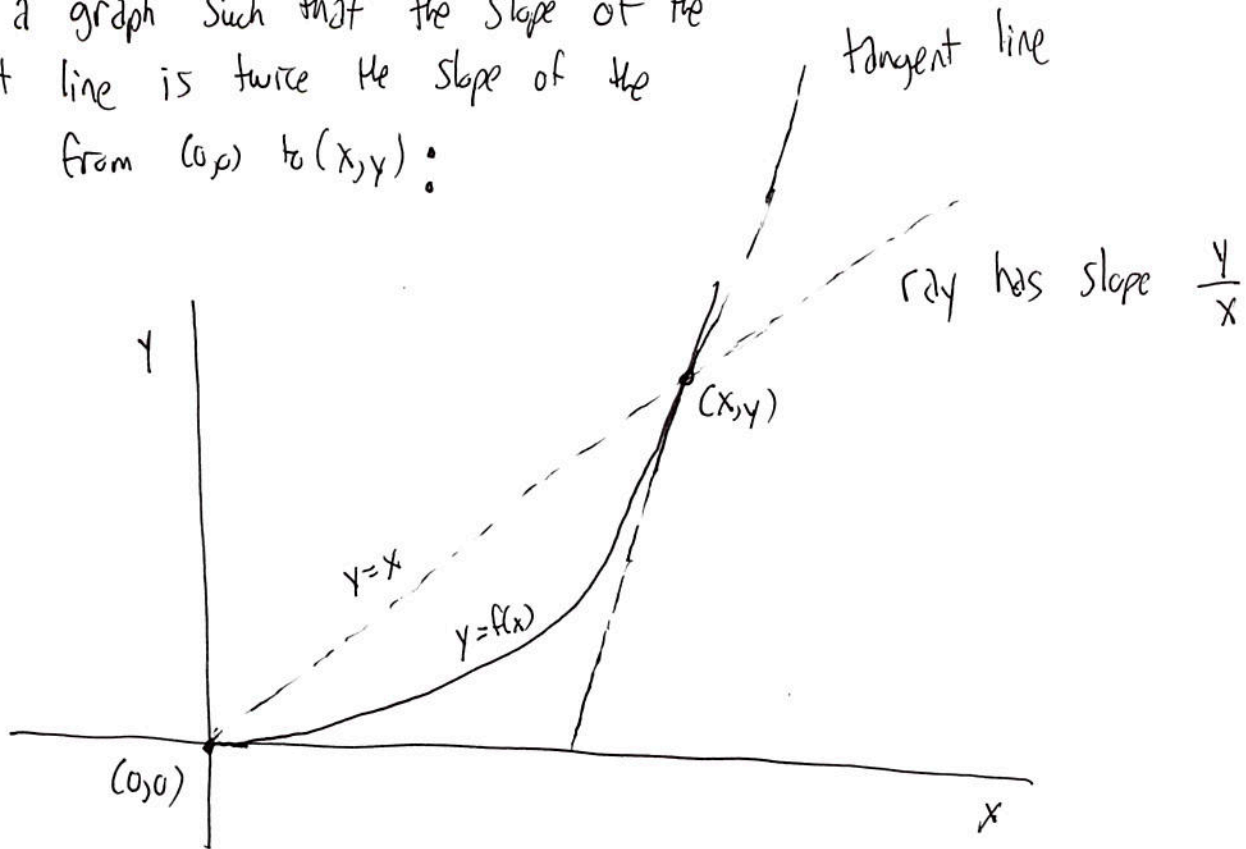 a graph such that the slope of the
line is twice the slope of the
from (0,0) to (x,y):
tangent line
ray has slope y/x
y
(x,y)
y=x
y=f(x)
(0,0)
x